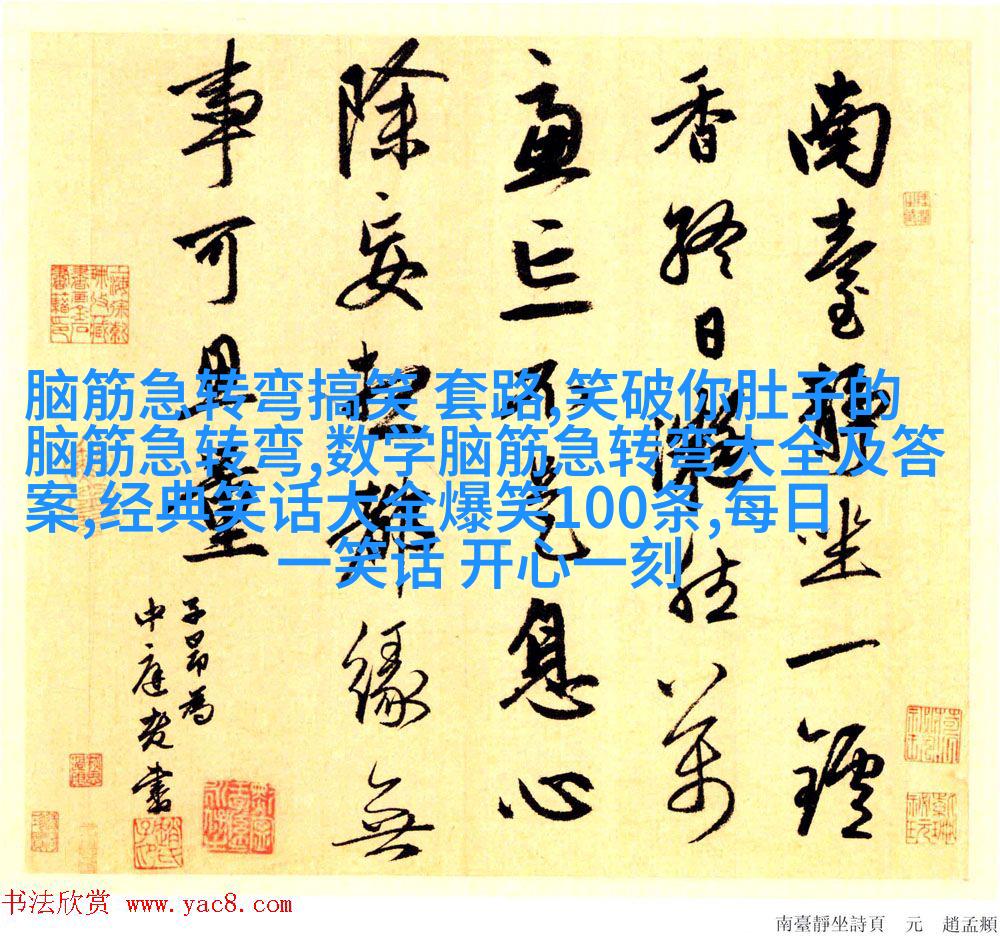 南臺靜坐一鑪
香終日凝然萬
慮亡不是息心
除妄想都緣無
事可思量
子昂為
中庭老書
脑筋急转弯搞笑 套路,笑破你肚子的
脑筋急转弯,数学脑筋急转弯大全及答
案,经典笑话大全爆笑100条,每日
一笑话 开心一刻
书法欣赏 www.yac8.com
南臺靜坐詩頁 元 趙孟頫